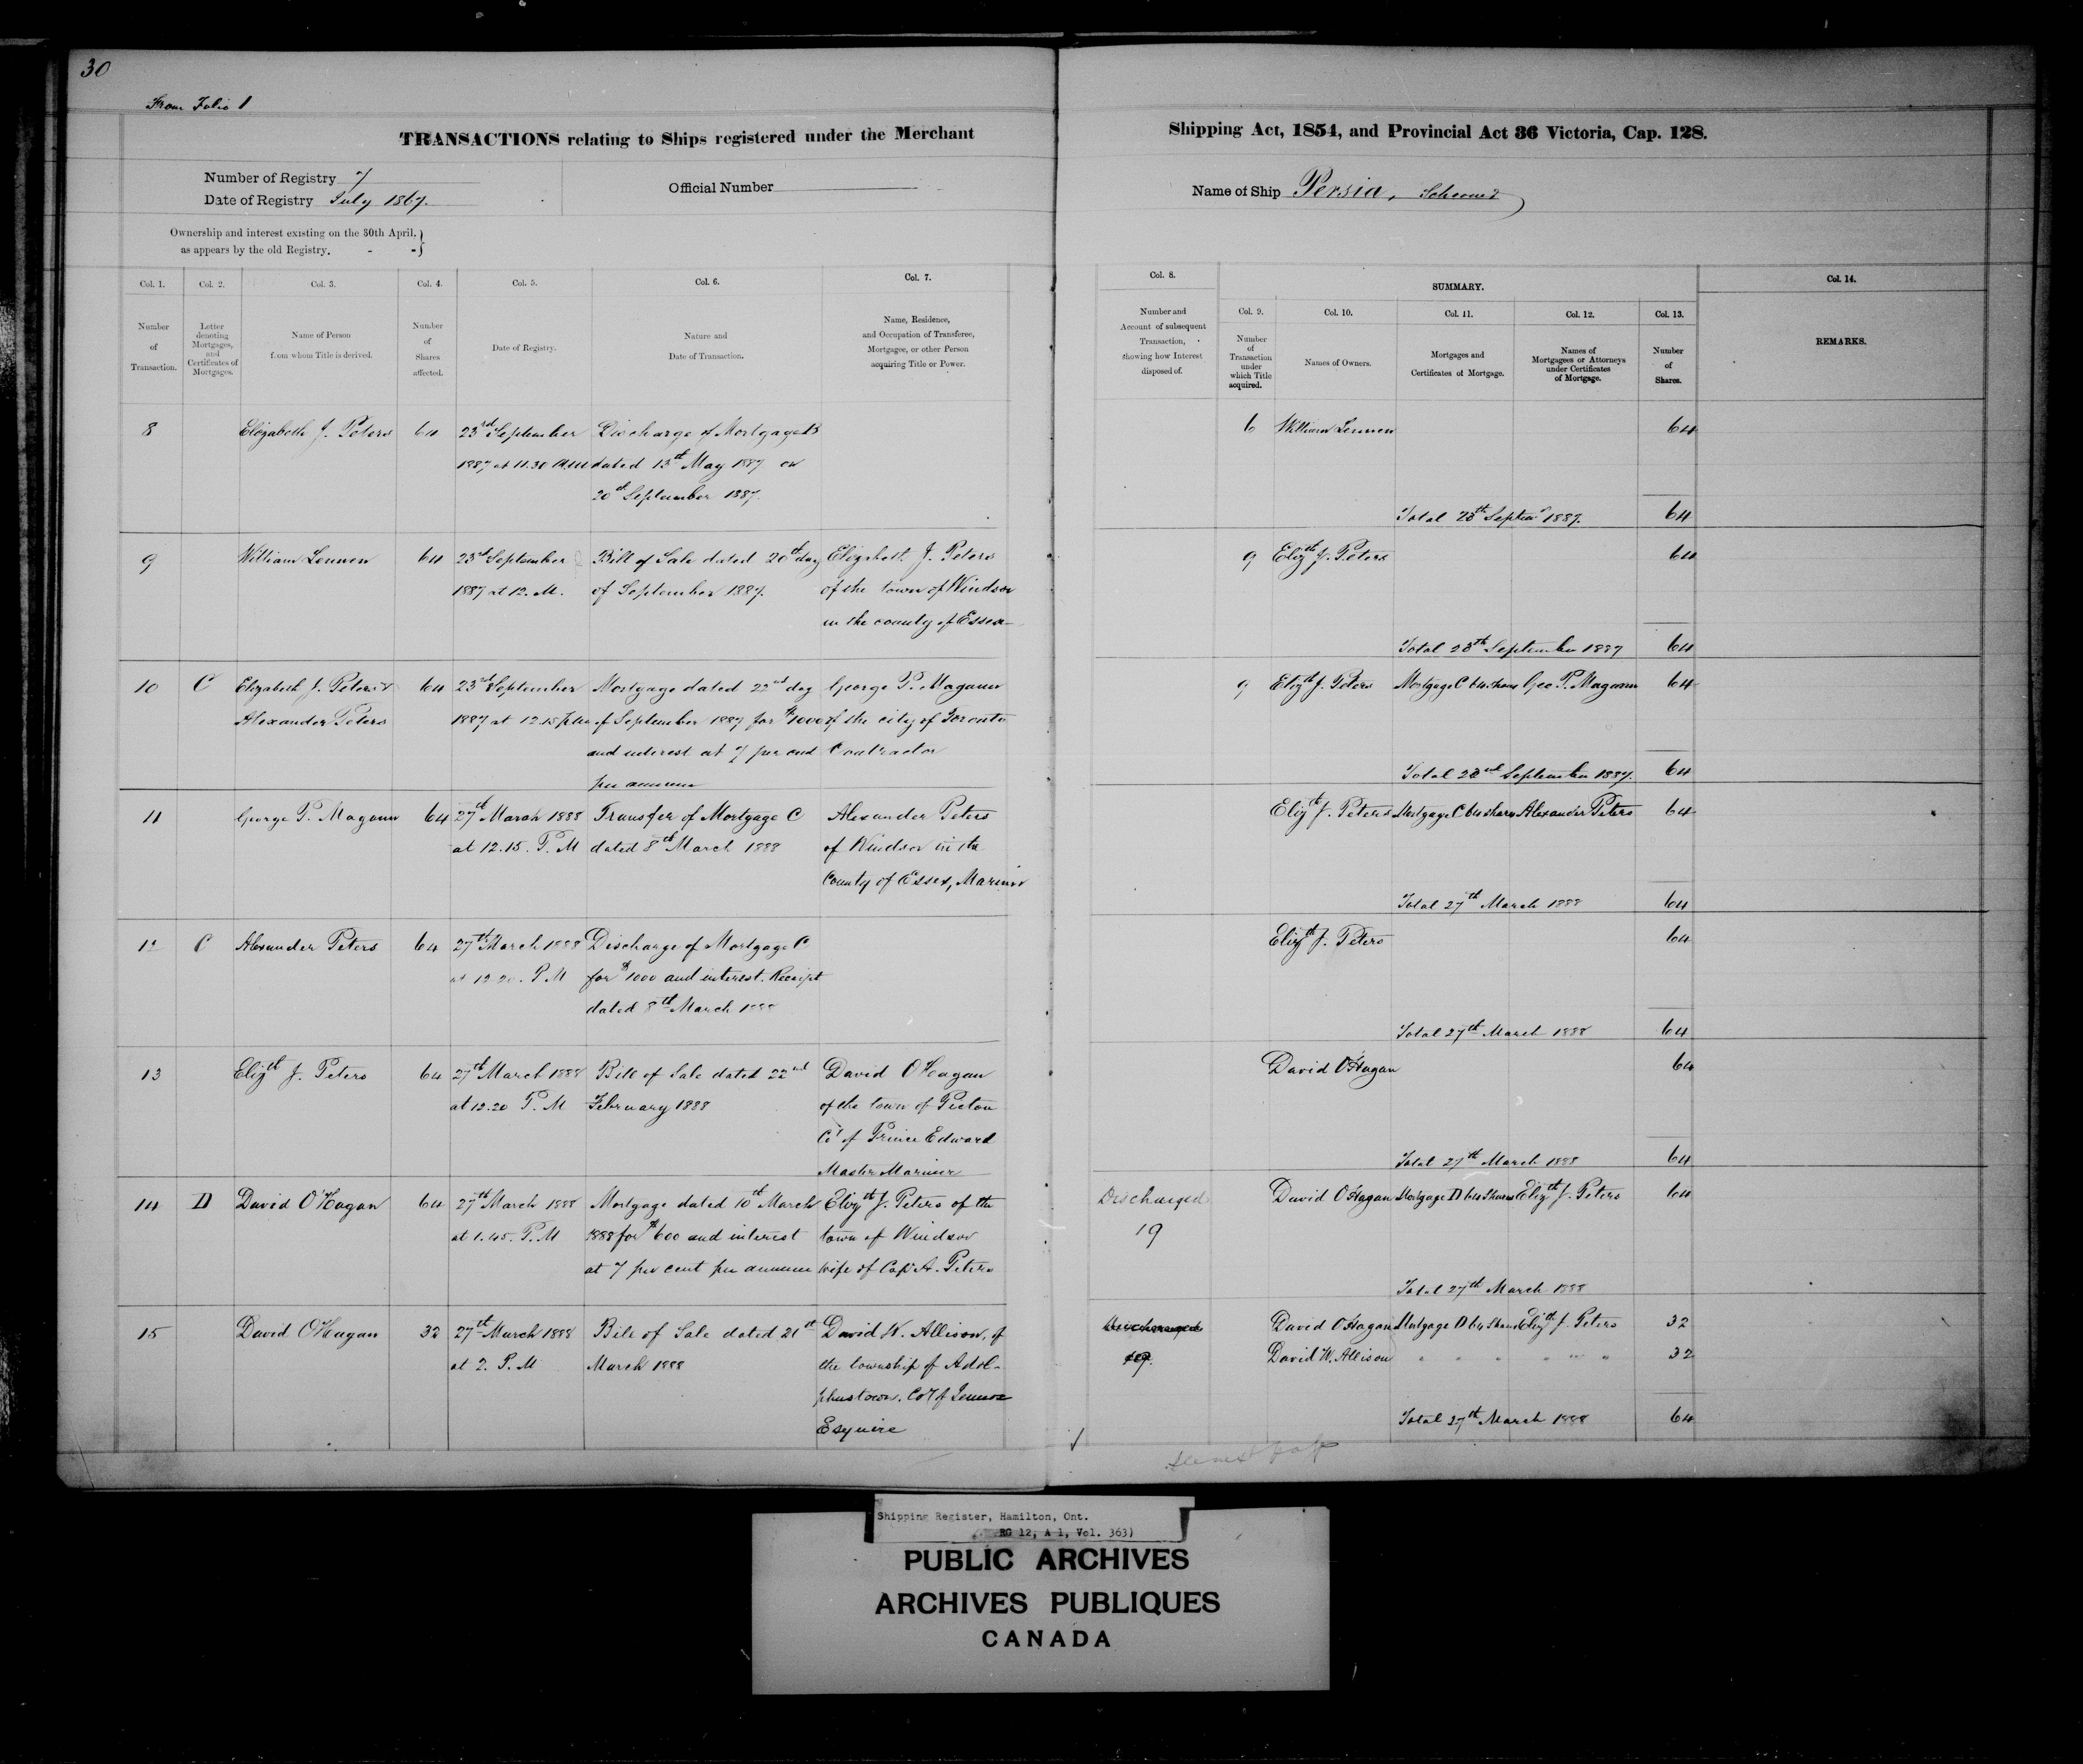 30
From Folio 1
TRANSACTIONS relating to Ships registered under the Merchant Shipping Act, 1854, and Provincial Act 36 Victoria, Cap. 128.
Number of Registry 7
Date of Registry July 1867.
Official Number
Name of Ship Persia, Schooner
Ownership and interest existing on the 30th April,
as appears by the old Registry.
Col. 1. Col. 2. Col. 3. Col. 4. Col. 5. Col. 6. Col. 7.
Number of Transaction.
Letter denoting Mortgages, and Certificates of Mortgages.
Name of Person from whom Title is derived.
Number of Shares affected.
Date of Registry.
Nature and Date of Transaction.
Name, Residence, and Occupation of Transferee, Mortgagee, or other Person acquiring Title or Power.
Col. 8.
Number and Account of subsequent Transaction, showing how Interest disposed of.
SUMMARY.
Col. 9. Col. 10. Col. 11. Col. 12. Col. 13.
Number of Transaction under which Title acquired.
Names of Owners.
Mortgages and Certificates of Mortgage.
Names of Mortgagees or Attorneys under Certificates of Mortgage.
Number of Shares.
Col. 14.
REMARKS.
8 Elizabeth J. Peters 64 23rd September Discharge of Mortgage B
1887 at 11.30 A.M. dated 13th May 1887 on
20th September 1887.
6 William Lennon 64
Total 23th Septem 1887. 64
9 William Lennon 64 23rd September Bill of Sale dated 20th day Elizabeth J. Peters
1887 at 12. M. of September 1887. of the town of Windsor
in the county of Essex
9 Elizth J. Peters 64
Total 23th September 1887 64
10 C Elizabeth J. Peters & 64 23rd September Mortgage dated 22nd day George P. Magann
Alexander Peters 1887 at 12.15 p.m. of September 1887 for $1000 of the city of Toronto
and interest at 7 per cent Contractor
per annum
9 Elizth J. Peters Mortgage C 64 Shares Geo. P. Magann 64
Total 23rd September 1887. 64
11 George P. Magann 64 27th March 1888 Transfer of Mortgage C Alexander Peters
at 12.15. P.M dated 8th March 1888 of Windsor in the
County of Essex, Mariner
Elizth J. Peters Mortgage C 64 shares Alexander Peters 64
Total 27th March 1888 64
12 C Alexander Peters 64 27th March 1888 Discharge of Mortgage C
at 12.20. P.M for $1000 and interest. Receipt
dated 8th March 1888
Elizth J. Peters 64
Total 27th March 1888 64
13 Elizth J. Peters 64 27th March 1888 Bill of Sale dated 22nd David O'Hagan
at 12.20 P.M February 1888 of the town of Picton
Co'y of Prince Edward
Master Mariner
David O'Hagan 64
Total 27th March 1888 64
14 D David O'Hagan 64 27th March 1888 Mortgage dated 10th March Elizth J. Peters of the
at 1.45. P.M 1888 for $600 and interest town of Windsor
at 7 per cent per annum wife of Capt A. Peters
Discharged
19
David O'Hagan Mortgage D 64 Shares Elizth J. Peters 64
Total 27th March 1888
15 David O'Hagan 32 27th March 1888 Bill of Sale dated 21st David W. Allison, of
at 2. P.M March 1888 the township of Adol-
phustown. Co'y of Lennox
Esquire
Discharged
19.
David O'Hagan Mortgage D 64 Shares Elizth J. Peters 32
David W. Allison " " " " " " 32
Total 27th March 1888 64
Shipping Register, Hamilton, Ont.
RG 12, A 1, Vol. 363)
PUBLIC ARCHIVES
ARCHIVES PUBLIQUES
CANADA